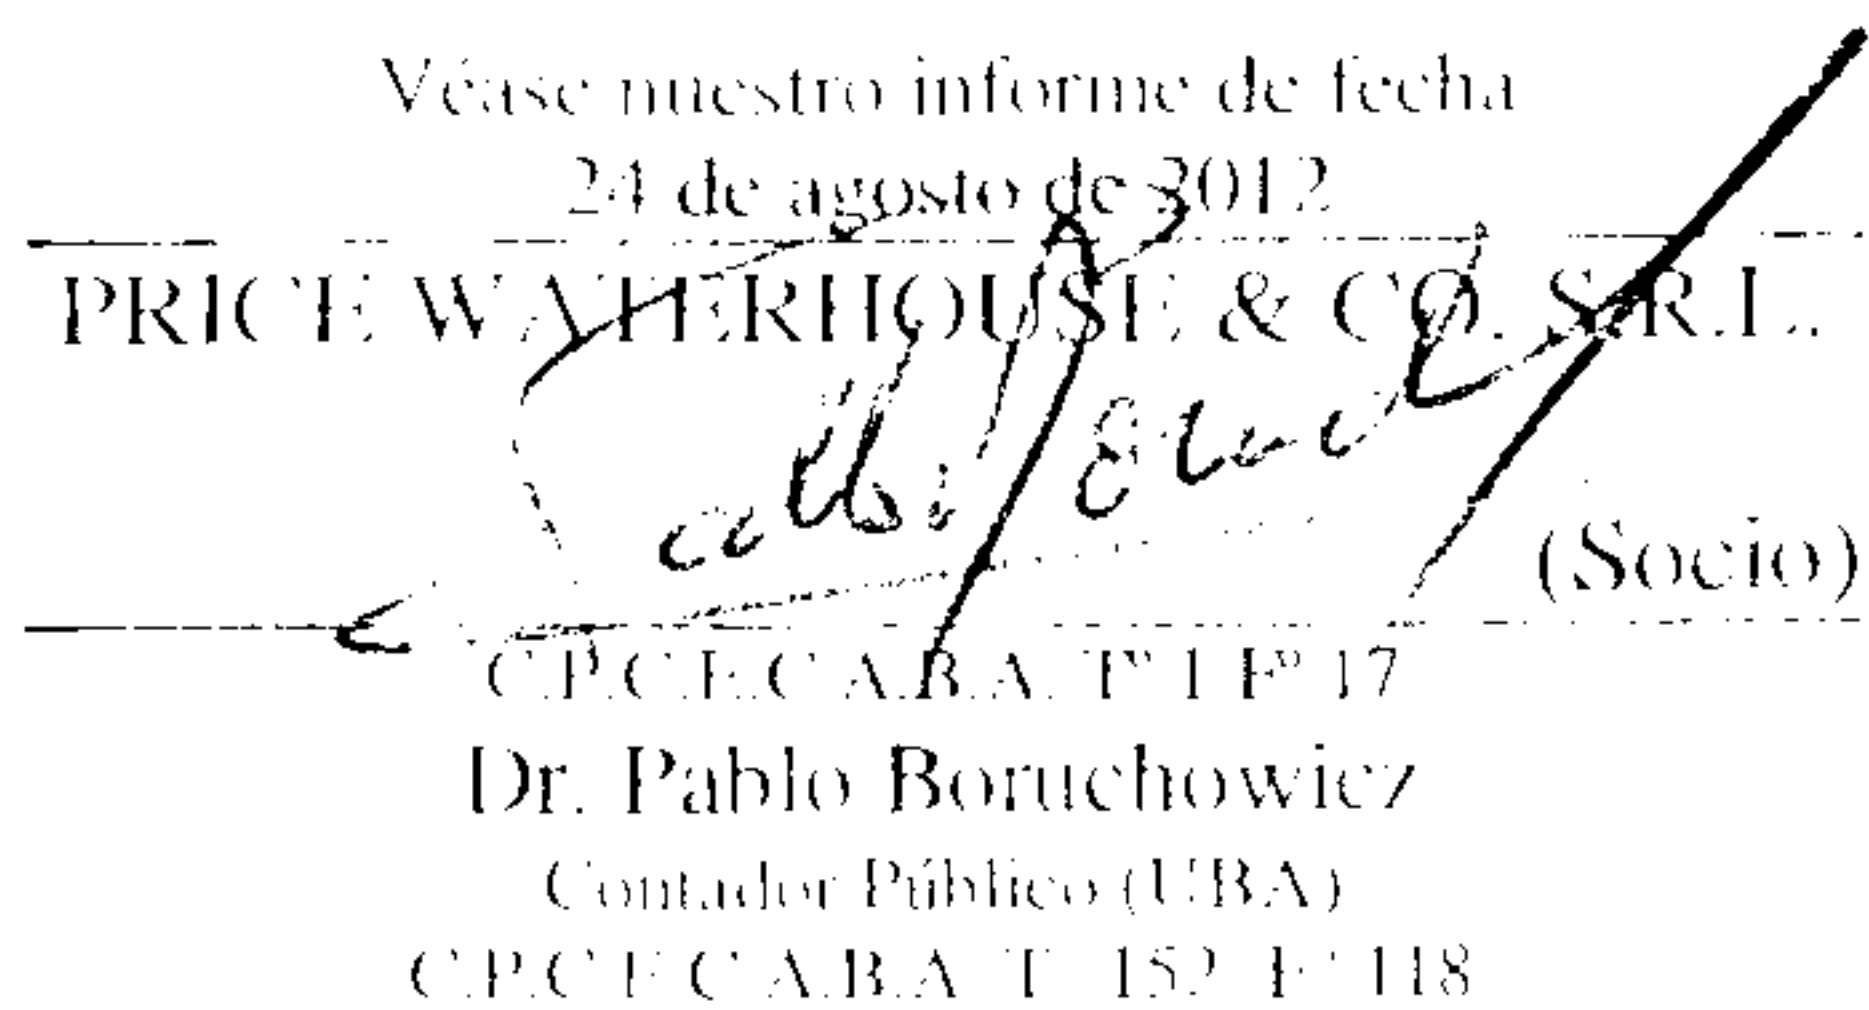 Véase nuestro informe de fecha
24 de agosto de 2012
PRICE WATERHOUSE & CO. S.R.L.
(Socio)
C.P.C.E.C.A.B.A. Tº 1 Fº 17
Dr. Pablo Boruchowicz
Contador Público (UBA)
C.P.C.E.C.A.B.A. Tº 152 Fº 118